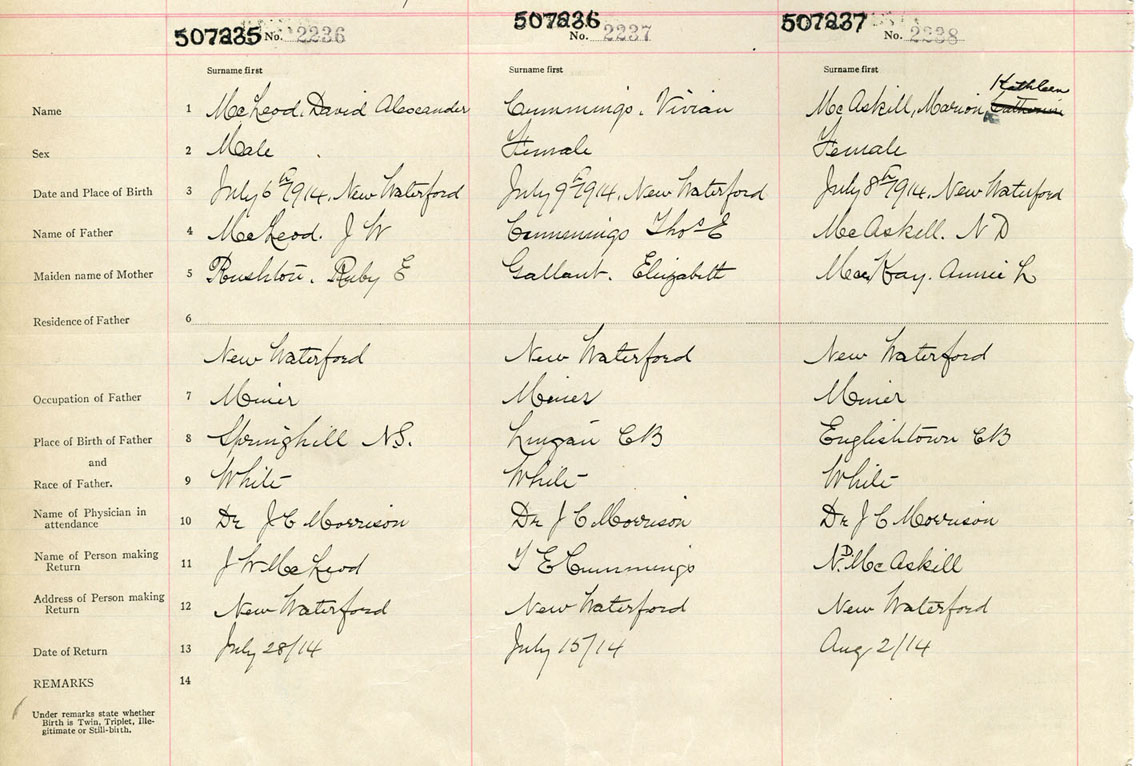 507235 No. 2236 507236 No. 2237 507237 No. 2238
Surname first Surname first Surname first
Kathleen
Name 1 McLeod, David Alexander Cummings, Vivian McAskill, Marion Catherine
Sex 2 Male Female Female
Date and Place of Birth 3 July 6th 1914, New Waterford July 9th 1914, New Waterford July 8th 1914, New Waterford
Name of Father 4 McLeod. J W Cummings Thos E McAskill. N D
Maiden name of Mother 5 Rushton, Ruby E Gallant. Elizabeth MacKay. Annie L
Residence of Father 6
New Waterford New Waterford New Waterford
Occupation of Father 7 Miner Miner Miner
Place of Birth of Father 8 Springhill N.S. Lingan CB Englishtown CB
and
Race of Father. 9 White White White
Name of Physician in
attendance 10 Dr J C Morrison Dr J C Morrison Dr J C Morrison
Name of Person making
Return 11 J W McLeod T E Cummings N.D. McAskill
Address of Person making
Return 12 New Waterford New Waterford New Waterford
Date of Return 13 July 28/14 July 15/14 Aug 2/14
REMARKS 14
Under remarks state whether
Birth is Twin, Triplet, Ille-
gitimate or Still-birth.